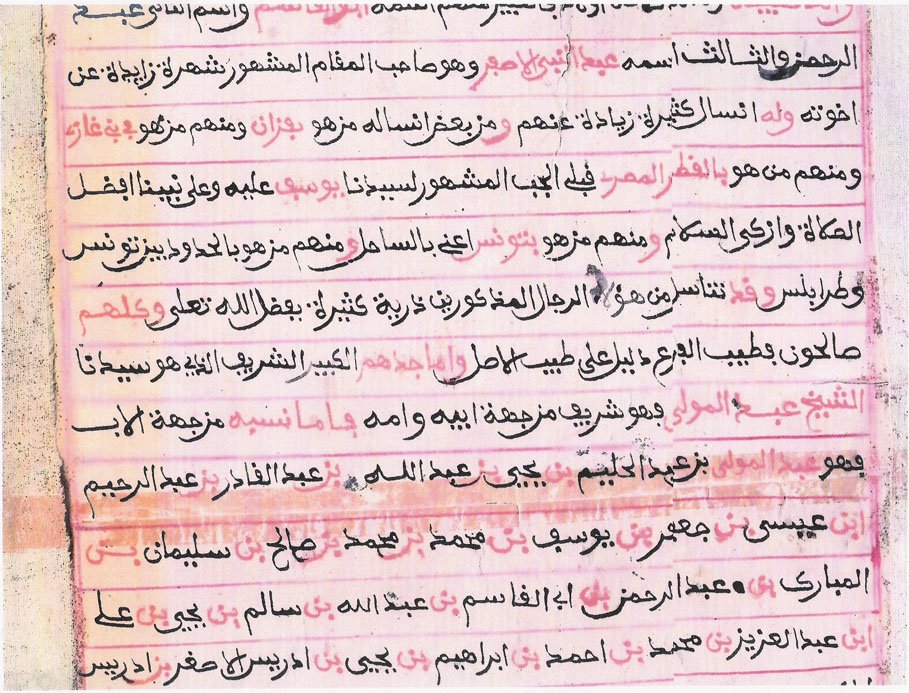 اسمه ابو القاسم واسم الثاني عبد
الرحمن والثالث اسمه عبد النبي الاصغر وهو صاحب المقام المشهور شهرة زايدة عن
اخوته وله انسال كثيرة زيادة عنهم ومن بعض انساله من هو بفزان ومنهم من هو ببنغازي
ومنهم من هو بالقطر المصري قبلي الجب المشهور لسيدنا يوسف عليه وعلى نبينا افضل
الصلاة وازكى السلام ومنهم من هو بتونس اعني بالساحل ومنهم من هو بالحدود بين تونس
وطرابلس وقد تناسل من هؤلاء الرجال المذكورين ذرية كثيرة بفضل الله تعلى وكلهم
صالحون فطيب الفرع دليل على طيب الاصل واما جدهم الكبير الشريف الذي هو سيدنا
الشيخ عبد المولى فهو شريف من جهة ابيه وامه فاما نسبه من جهة الاب
فهو عبد المولى بن عبد الحليم بن يحيى بن عبد الله بن عبد القادر بن عبد الرحيم
ابن عيسى بن جعفر بن يوسف بن محمد بن محمد بن صالح بن سليمان بن
المبارك بن عبد الرحمن بن ابي القاسم بن عبد الله بن سالم بن يحيى بن علي
ابن عبد العزيز بن محمد بن احمد بن ابراهيم بن يحيى بن ادريس الاصغر بن ادريس